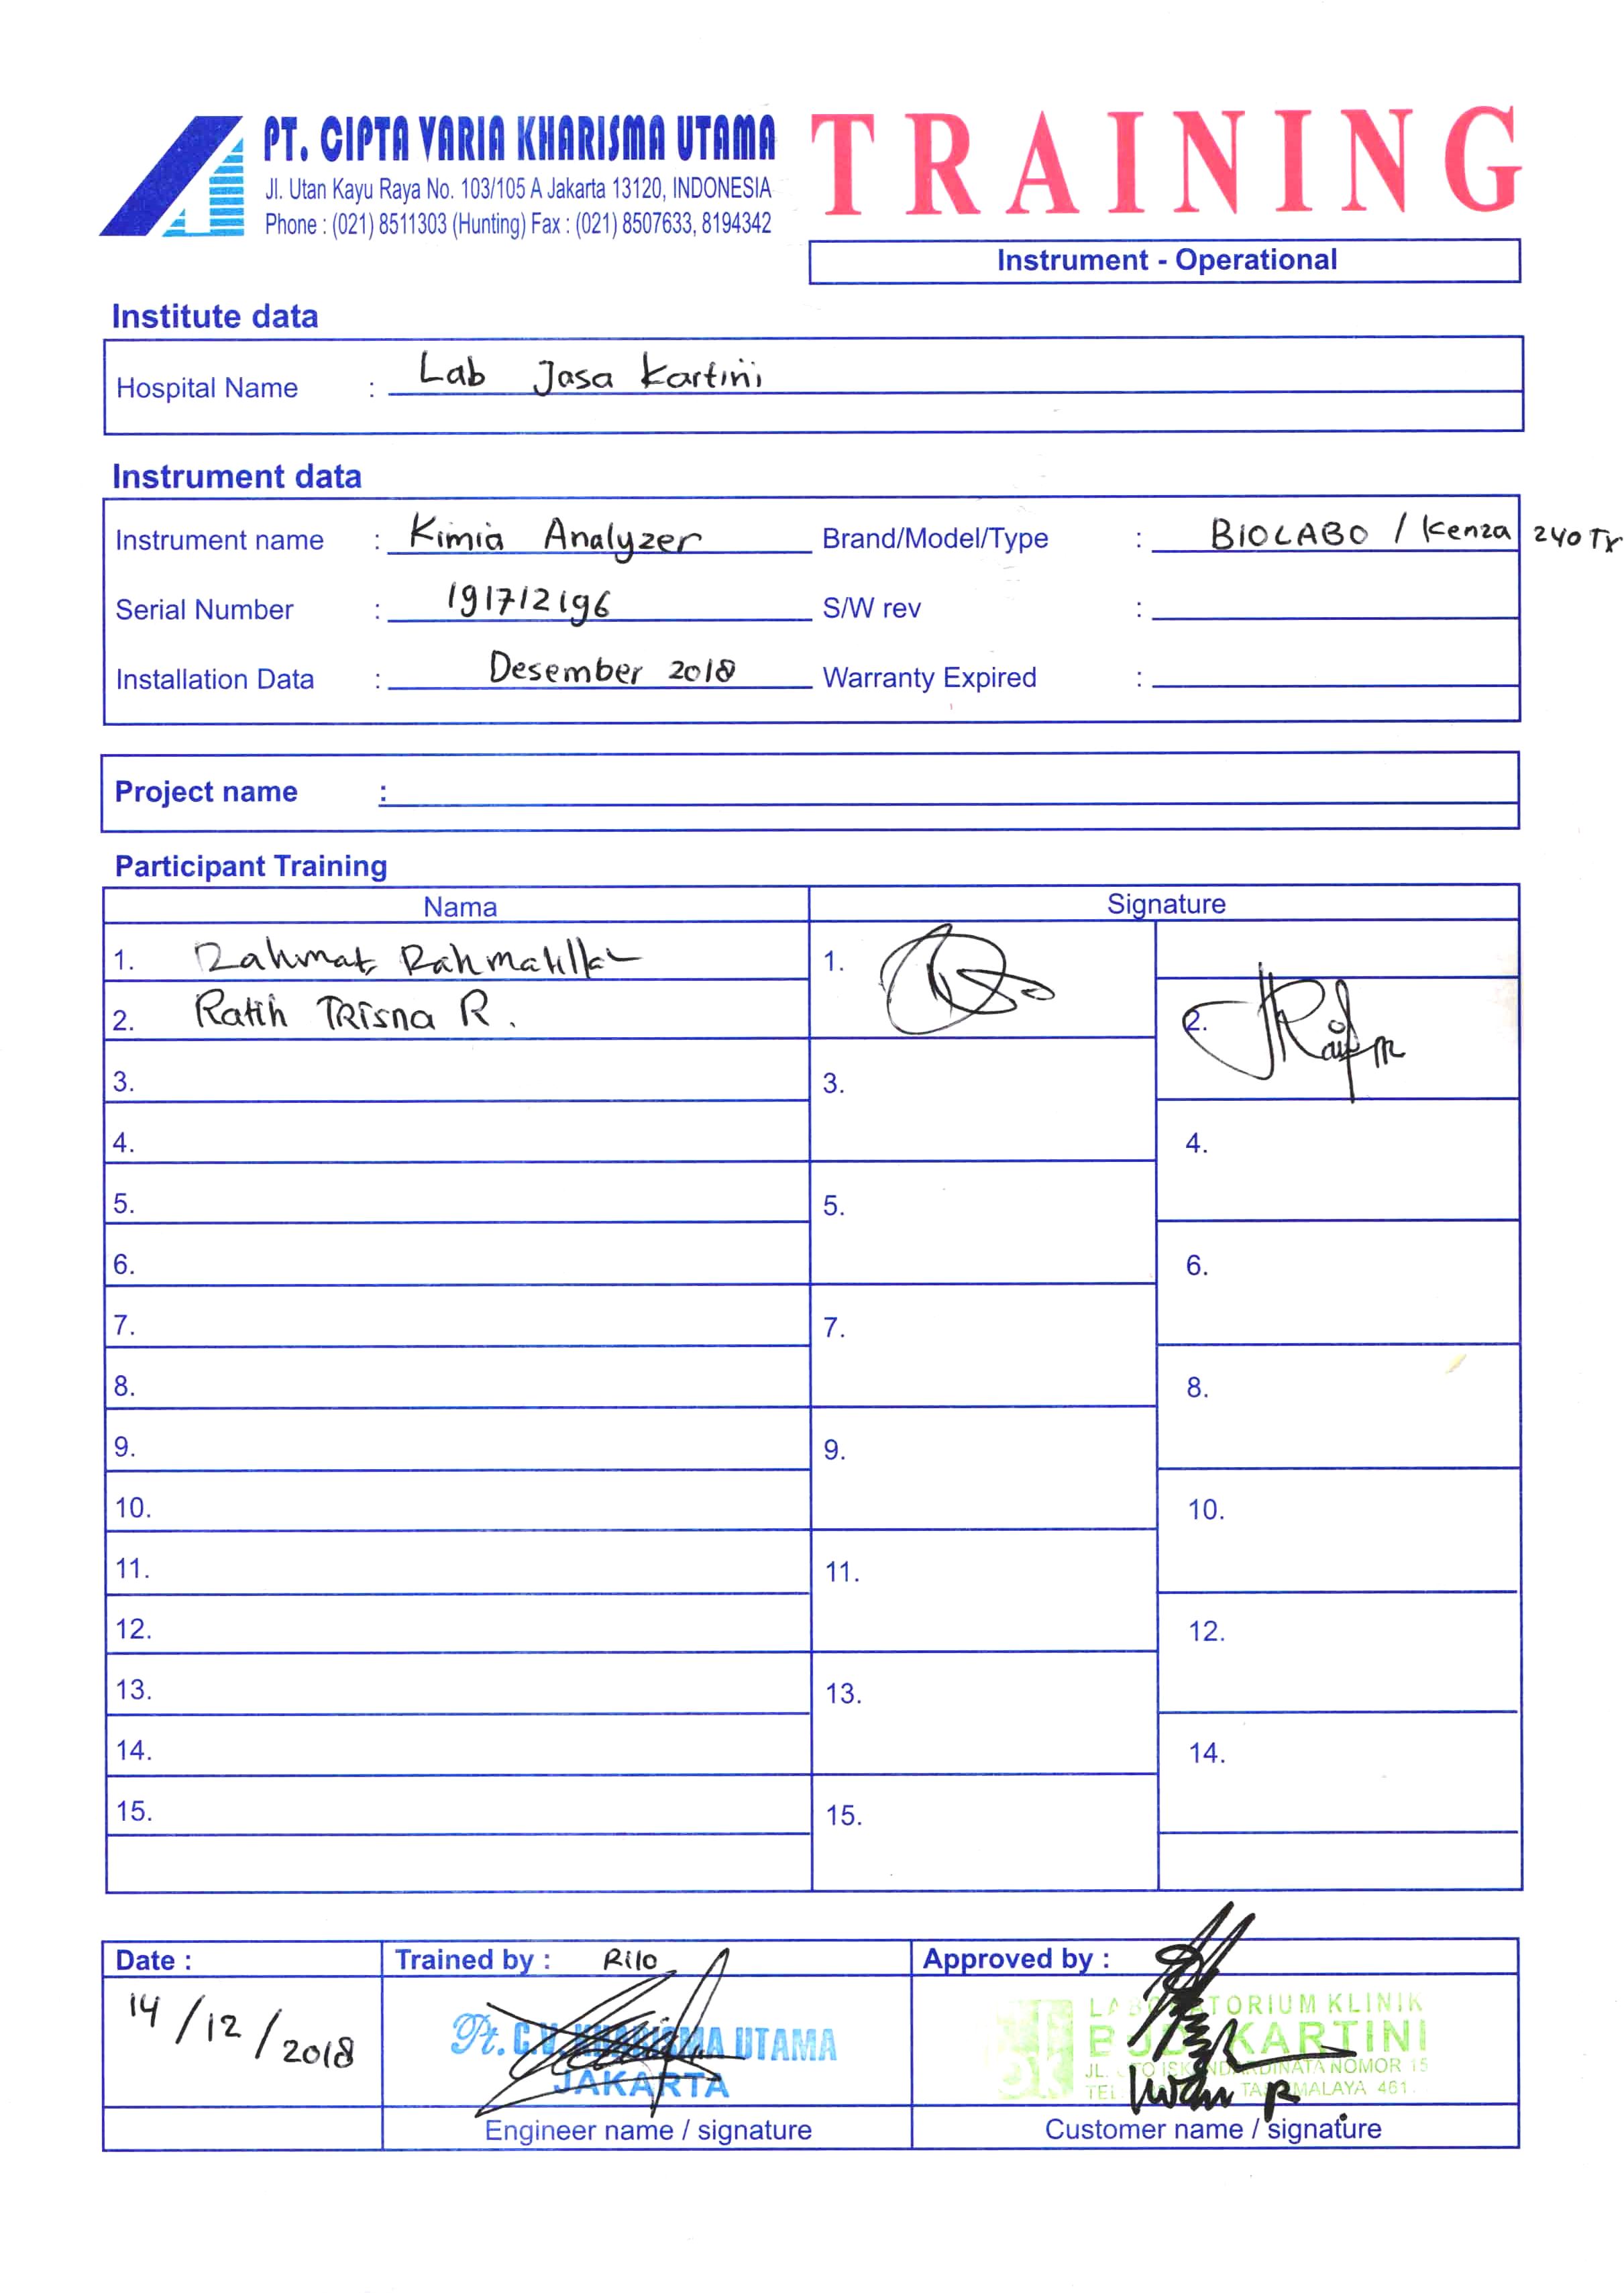 PT. CIPTA VARIA KHARISMA UTAMA
Jl. Utan Kayu Raya No. 103/105 A Jakarta 13120, INDONESIA
Phone : (021) 8511303 (Hunting) Fax : (021) 8507633, 8194342
TRAINING
Instrument - Operational
Institute data
Hospital Name : Lab Jasa Kartini
Instrument data
Instrument name : Kimia Analyzer Brand/Model/Type : BIOLABO / Kenza 240 Tx
Serial Number : 191712196 S/W rev :
Installation Data : Desember 2018 Warranty Expired :
Project name :
Participant Training
Nama Signature
1. Rahmat 1.
2. Ratih Trisna R. 2.
3. 3.
4. 4.
5. 5.
6. 6.
7. 7.
8. 8.
9. 9.
10. 10.
11. 11.
12. 12.
13. 13.
14. 14.
15. 15.
Date : Trained by : Rilo Approved by :
14/12/2018
Pt. C.V. KHARISMA UTAMA
JAKARTA
LABORATORIUM KLINIK
KARTINI
NOMOR 15
Iwan R
Engineer name / signature Customer name / signature